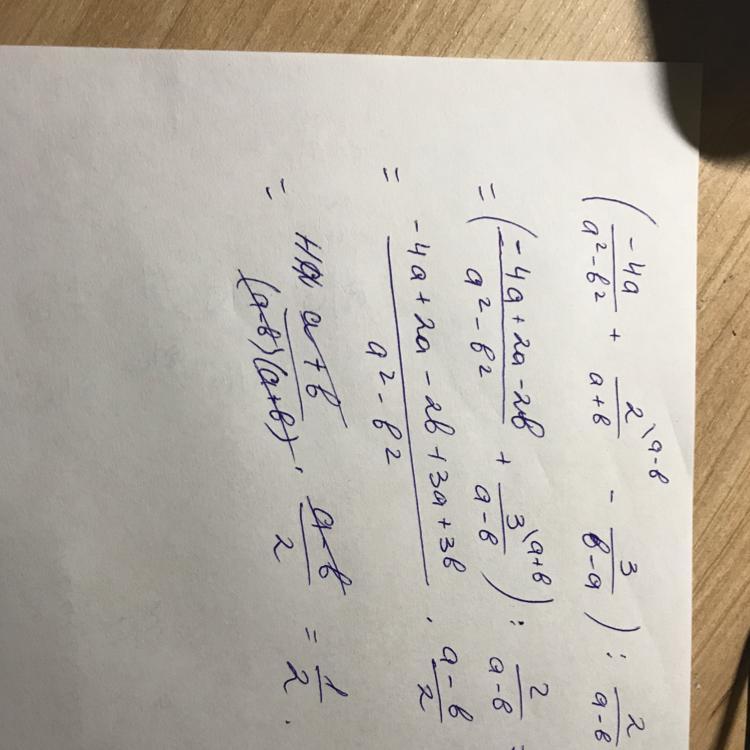 ( -4a / a² - b² + 2\a-b / a+b - 3 / b-a ) : 2 / a-b
= ( -4a + 2a - 2b / a² - b² + 3\a+b / a-b ) : 2 / a-b =
= -4a + 2a - 2b + 3a + 3b / a² - b² · a-b / 2
= a+b / (a-b)(a+b) · a-b / 2 = 1 / 2 .